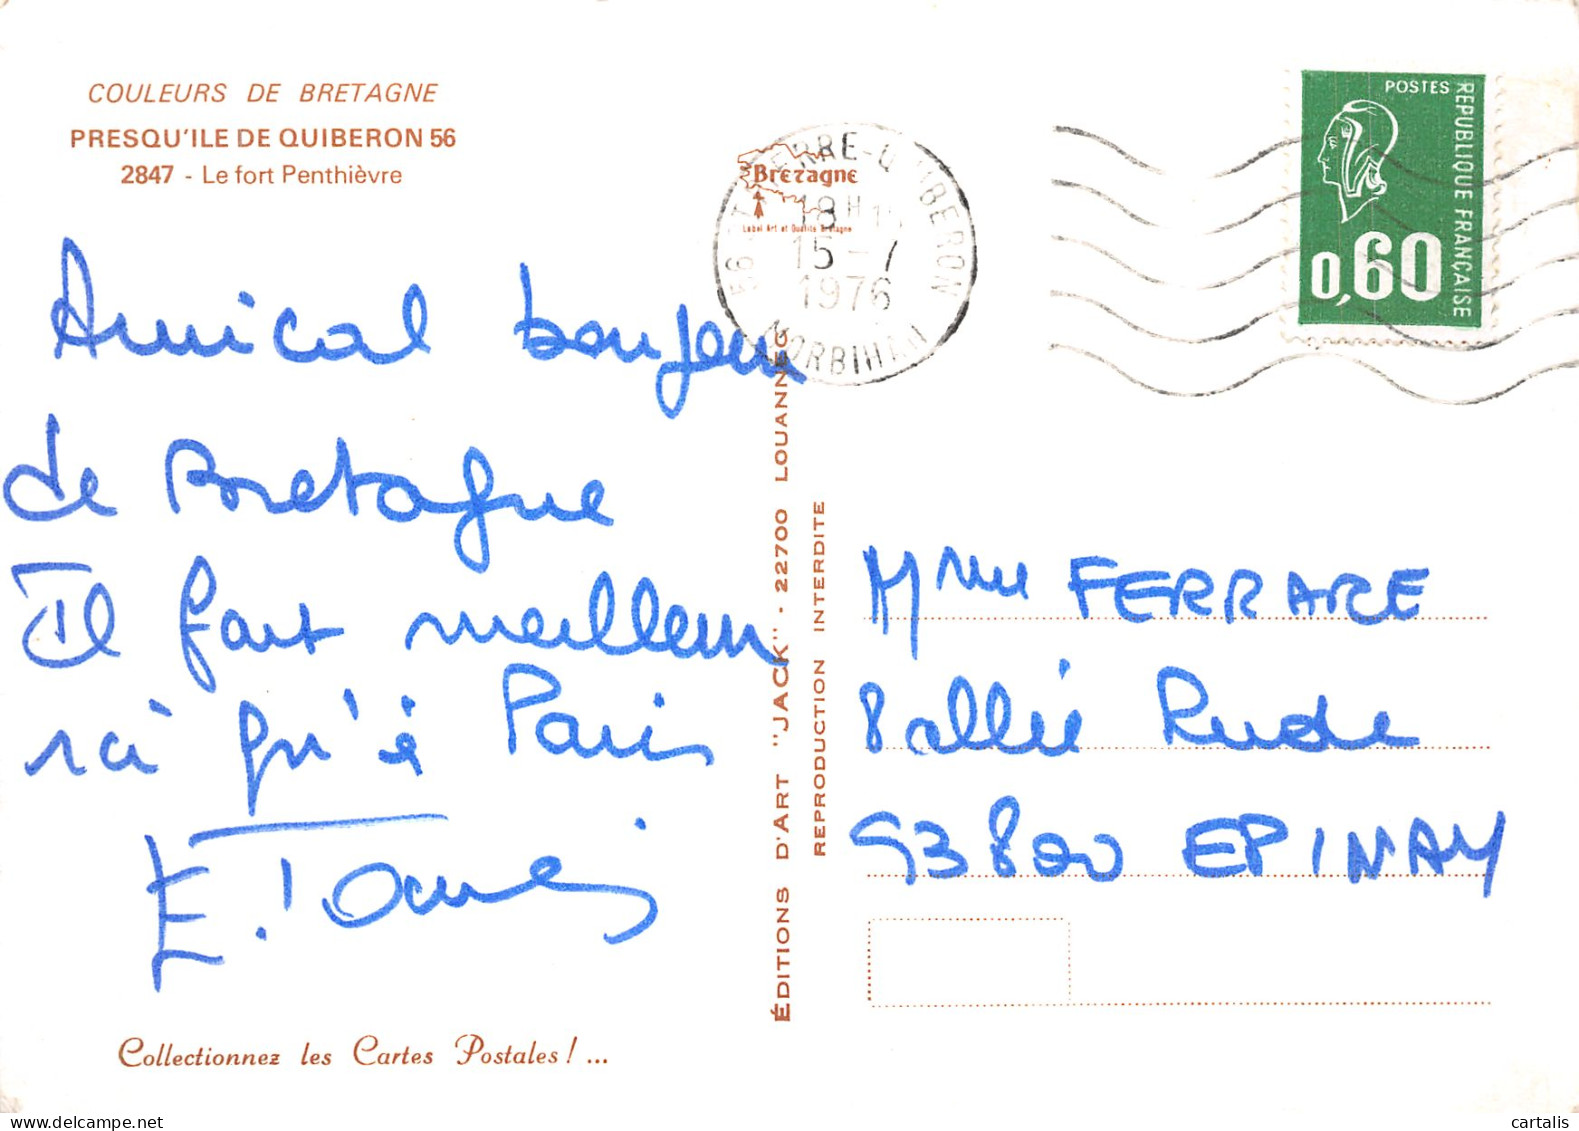 COULEURS DE BRETAGNE
PRESQU'ILE DE QUIBERON 56
2847 - Le fort Penthièvre
Amical bonjour
de Bretagne
Il fait meilleur
ici qu'à Paris
Collectionnez les Cartes Postales! ...
ÉDITIONS D'ART "JACK" - 22700 LOUANNEC
REPRODUCTION INTERDITE
Bretagne
Label Art et Qualité Bretagne
18H
15-7
1976
MORBIHAN
POSTES
REPUBLIQUE FRANÇAISE
0,60
Mme FERRARE
8 allée Rude
93800 EPINAY
cartalis